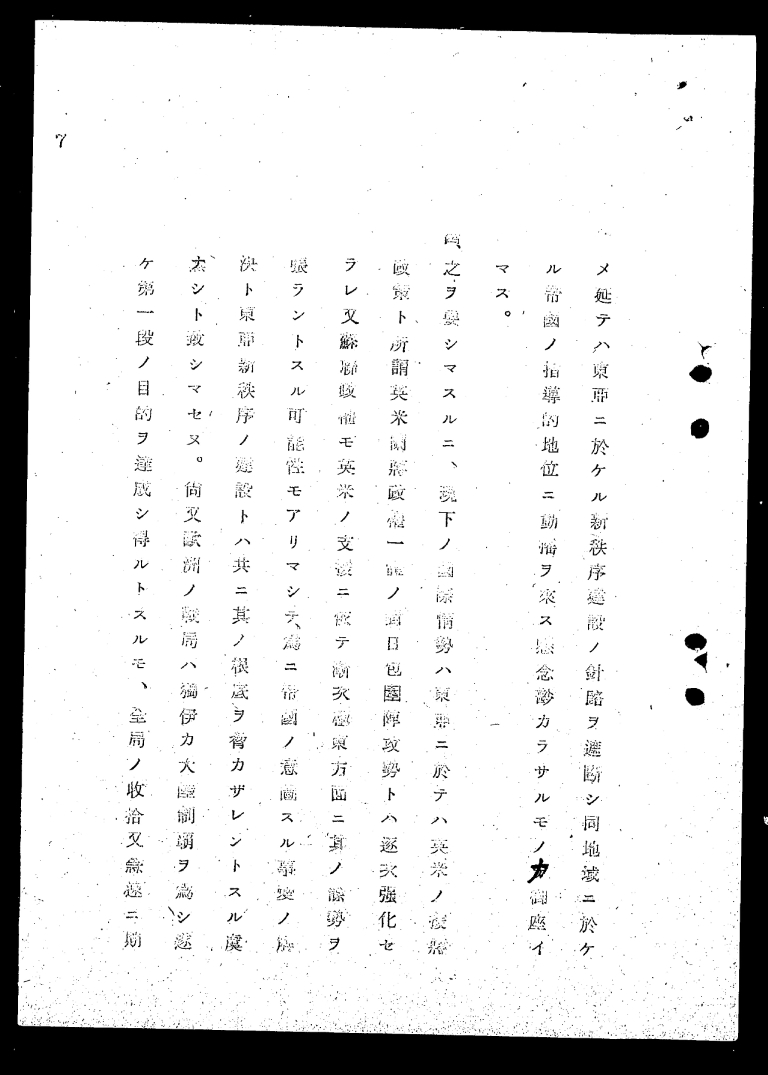 メ延テハ東亞ニ於ケル新秩序建設ノ針路ヲ遮斷シ同地域ニ於ケ
ル帝國ノ指導的地位ニ動搖ヲ來ス懸念尠カラサルモノカ御座イ
マス。
四、之ヲ要シマスルニ、現下ノ國際情勢ハ東亞ニ於テハ英米ノ援蔣
政策ト所謂英米蘭蔣政權一體ノ對日包圍陣攻勢トハ逐次强化セ
ラレ又蘇聯政權モ英米ノ支援ニ依テ漸次極東方面ニ其ノ餘勢ヲ
張ラントスル可能性モアリマシテ、爲ニ帝國ノ意圖スル事變ノ解
決ト東亞新秩序ノ建設トハ共ニ其ノ根底ヲ脅カザレントスル虞
大シト致シマセヌ。尙又歐洲ノ戰局ハ獨伊カ大陸制覇ヲ爲シ遂
ケ第一段ノ目的ヲ達成シ得ルトスルモ、全局ノ收拾又急速ニ期
7